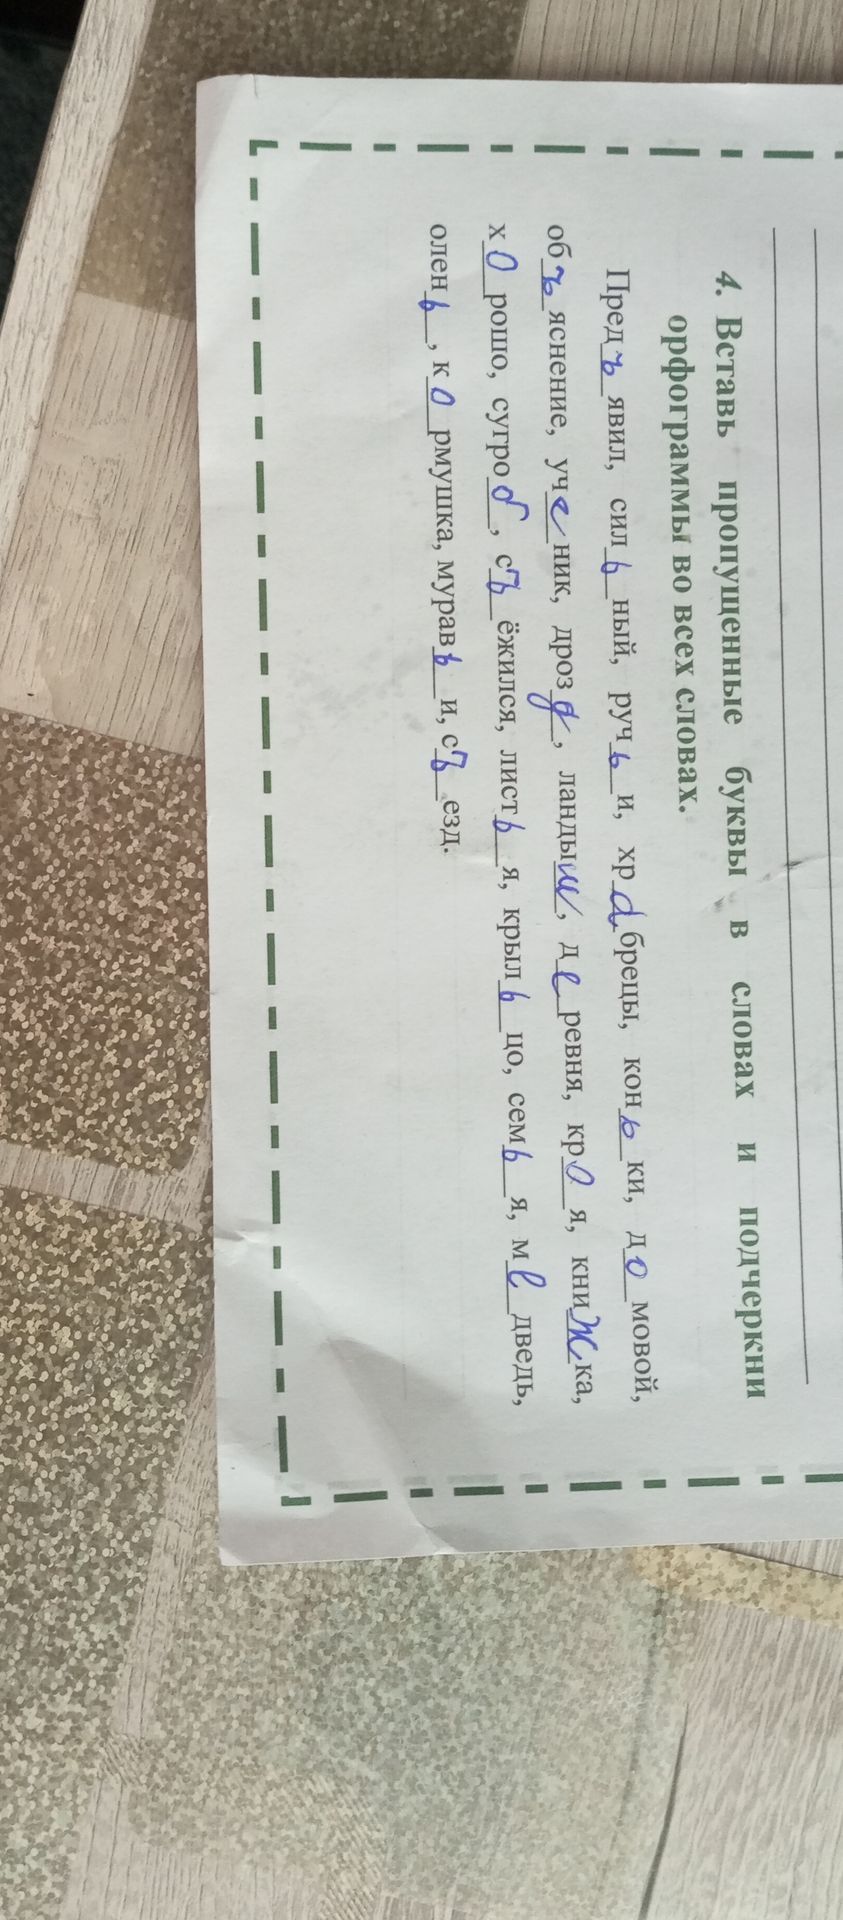 4. Вставь пропущенные буквы в словах и подчеркни
орфограммы во всех словах.
Предъявил, сильный, ручьи, храбрецы, коньки, домовой,
объяснение, ученик, дрозд, ландыш, деревня, кроя, книжка,
хорошо, сугроб, съёжился, листья, крыльцо, семья, медведь,
олень, кормушка, муравьи, съезд.